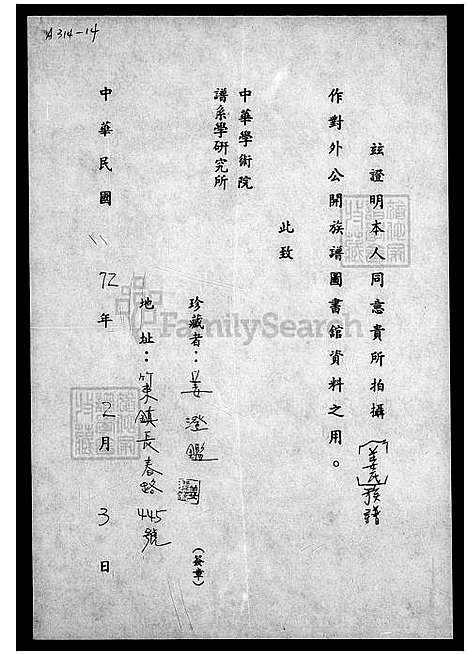 A314-14
茲證明本人同意貴所拍攝〔姜氏〕族譜
作對外公開族譜圖書館資料之用。
此致
中華學術院
譜系學研究所
珍藏者：姜澄鑑（簽章）
地址：竹東鎮長春路445號
中華民國72年2月3日
FamilySearch